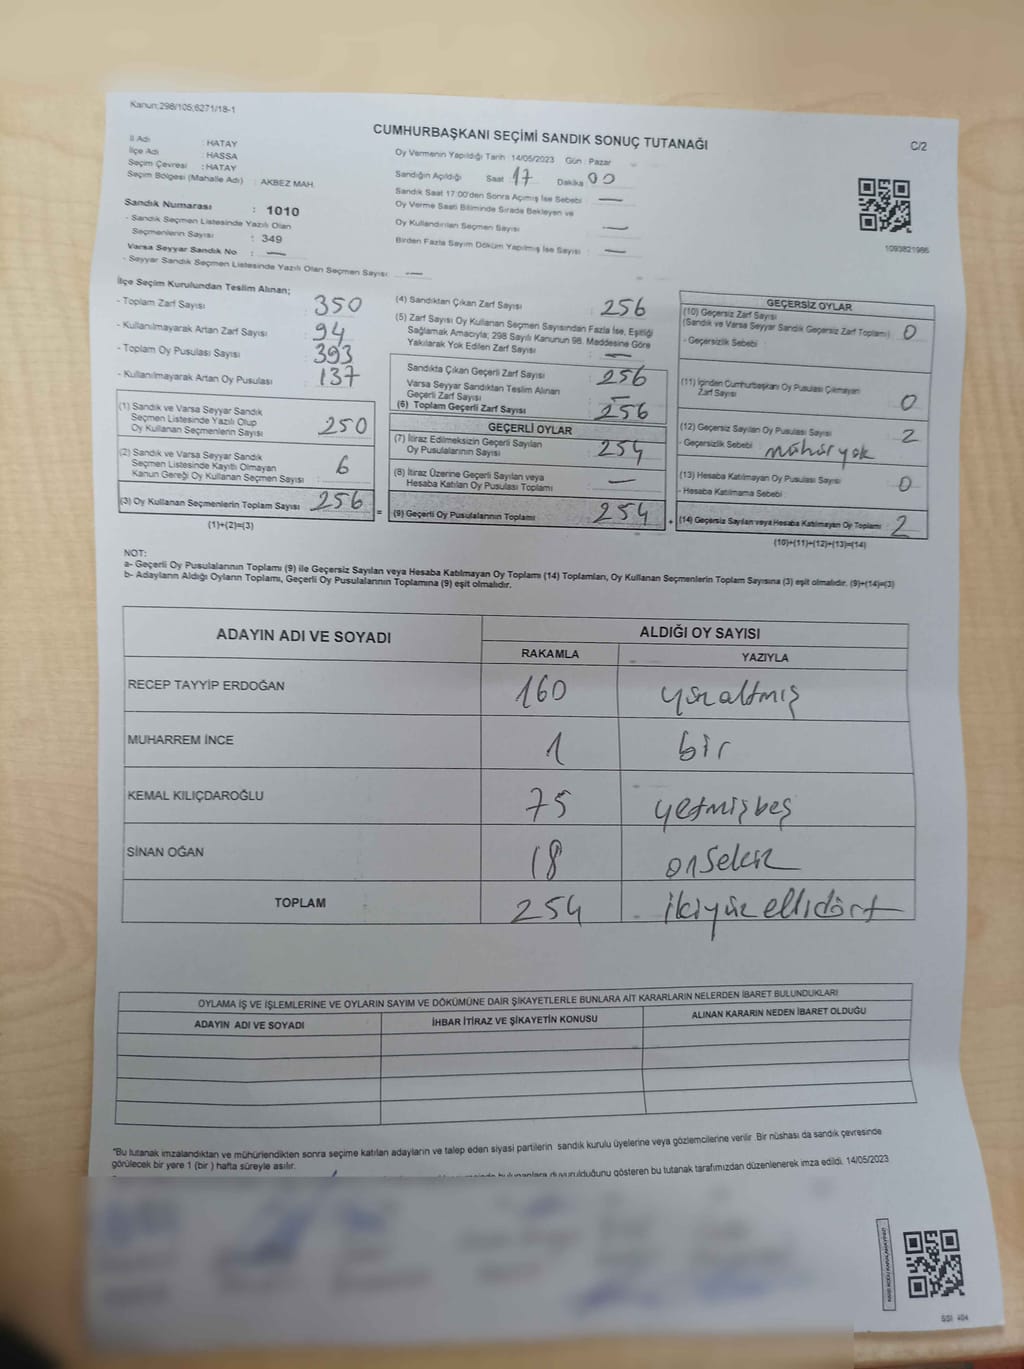 Kanun:298/105;6271/18-1
CUMHURBAŞKANI SEÇİMİ SANDIK SONUÇ TUTANAĞI
C/2
İl Adı : HATAY
İlçe Adı : HASSA
Seçim Çevresi : HATAY
Seçim Bölgesi (Mahalle Adı) : AKBEZ MAH.
Sandık Numarası : 1010
- Sandık Seçmen Listesinde Yazılı Olan
Seçmenlerin Sayısı : 349
Varsa Seyyar Sandık No : —
- Seyyar Sandık Seçmen Listesinde Yazılı Olan Seçmen Sayısı : —
Oy Vermenin Yapıldığı Tarih : 14/05/2023 Gün : Pazar
Sandığın Açıldığı Saat 17 Dakika 00
Sandık Saat 17:00'den Sonra Açımış İse Sebebi : —
Oy Verme Saati Bitiminde Sırada Bekleyen ve
Oy Kullandırılan Seçmen Sayısı : —
Birden Fazla Sayım Döküm Yapılmış İse Sayısı : —
1093821986
İlçe Seçim Kurulundan Teslim Alınan;
- Toplam Zarf Sayısı : 350
- Kullanılmayarak Artan Zarf Sayısı : 94
- Toplam Oy Pusulası Sayısı : 393
- Kullanılmayarak Artan Oy Pusulası : 137
(1) Sandık ve Varsa Seyyar Sandık
Seçmen Listesinde Yazılı Olup
Oy Kullanan Seçmenlerin Sayısı : 250
(2) Sandık ve Varsa Seyyar Sandık
Seçmen Listesinde Kayıtlı Olmayan
Kanun Gereği Oy Kullanan Seçmen Sayısı : 6
(3) Oy Kullanan Seçmenlerin Toplam Sayısı : 256
(1)+(2)=(3)
=
(4) Sandıktan Çıkan Zarf Sayısı : 256
(5) Zarf Sayısı Oy Kullanan Seçmen Sayısından Fazla İse, Eşitliği
Sağlamak Amacıyla; 298 Sayılı Kanunun 98. Maddesine Göre
Yakılarak Yok Edilen Zarf Sayısı : —
Sandıkta Çıkan Geçerli Zarf Sayısı : 256
Varsa Seyyar Sandıktan Teslim Alınan
Geçerli Zarf Sayısı : —
(6) Toplam Geçerli Zarf Sayısı : 256
GEÇERLİ OYLAR
(7) İtiraz Edilmeksizin Geçerli Sayılan
Oy Pusulalarının Sayısı : 254
(8) İtiraz Üzerine Geçerli Sayılan veya
Hesaba Katılan Oy Pusulası Toplamı : —
(9) Geçerli Oy Pusulalarının Toplamı : 254
+
GEÇERSİZ OYLAR
(10) Geçersiz Zarf Sayısı
(Sandık ve Varsa Seyyar Sandık Geçersiz Zarf Toplamı) : 0
- Geçersizlik Sebebi :
(11) İçinden Cumhurbaşkanı Oy Pusulası Çıkmayan
Zarf Sayısı : 0
(12) Geçersiz Sayılan Oy Pusulası Sayısı : 2
- Geçersizlik Sebebi : mühür yok
(13) Hesaba Katılmayan Oy Pusulası Sayısı : 0
- Hesaba Katılmama Sebebi :
(14) Geçersiz Sayılan veya Hesaba Katılmayan Oy Toplamı : 2
(10)+(11)+(12)+(13)=(14)
NOT:
a- Geçerli Oy Pusulalarının Toplamı (9) ile Geçersiz Sayılan veya Hesaba Katılmayan Oy Toplamı (14) Toplamları, Oy Kullanan Seçmenlerin Toplam Sayısına (3) eşit olmalıdır. (9)+(14)=(3)
b- Adayların Aldığı Oyların Toplamı, Geçerli Oy Pusulalarının Toplamına (9) eşit olmalıdır.
ADAYIN ADI VE SOYADI
ALDIĞI OY SAYISI
RAKAMLA YAZIYLA
RECEP TAYYİP ERDOĞAN 160 yüzaltmış
MUHARREM İNCE 1 bir
KEMAL KILIÇDAROĞLU 75 yetmişbeş
SİNAN OĞAN 18 onsekiz
TOPLAM 254 ikiyüzellidört
OYLAMA İŞ VE İŞLEMLERİNE VE OYLARIN SAYIM VE DÖKÜMÜNE DAİR ŞİKAYETLERLE BUNLARA AİT KARARLARIN NELERDEN İBARET BULUNDUKLARI
ADAYIN ADI VE SOYADI İHBAR İTİRAZ VE ŞİKAYETİN KONUSU ALINAN KARARIN NEDEN İBARET OLDUĞU
"Bu tutanak imzalandıktan ve mühürlendikten sonra seçime katılan adayların ve talep eden siyasi partilerin sandık kurulu üyelerine veya gözlemcilerine verilir. Bir nüshası da sandık çevresinde
görülecek bir yere 1 (bir) hafta süreyle asılır.
duyurulduğunu gösteren bu tutanak tarafımızdan düzenlenerek imza edildi. 14/05/2023